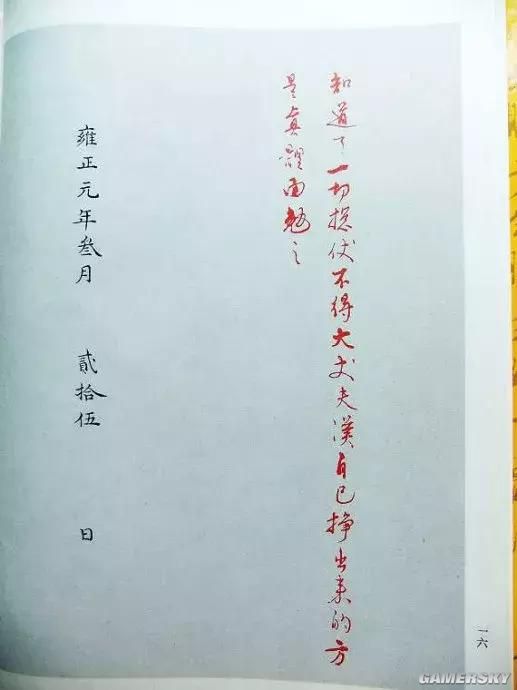 知道了一切總仗不得大丈夫漢自己掙出来的方
是真體面勉之
雍正元年叁月 貳拾伍 日
一六
GAMERSKY